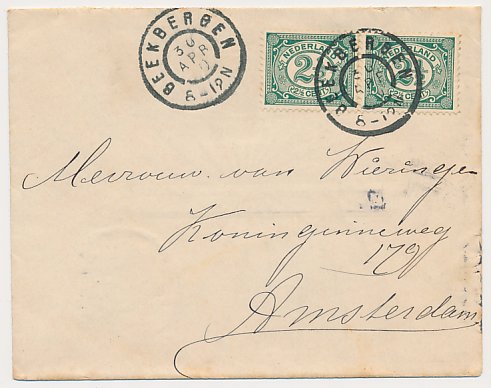 BEEKBERGEN
30
APR
8-12N
NEDERLAND
2½
2½ CENT
NEDERLAND
2½ CENT
BEEKBERGEN
8-12N
Mevrouw van Wieringen
Koninginneweg
179
Amsterdam